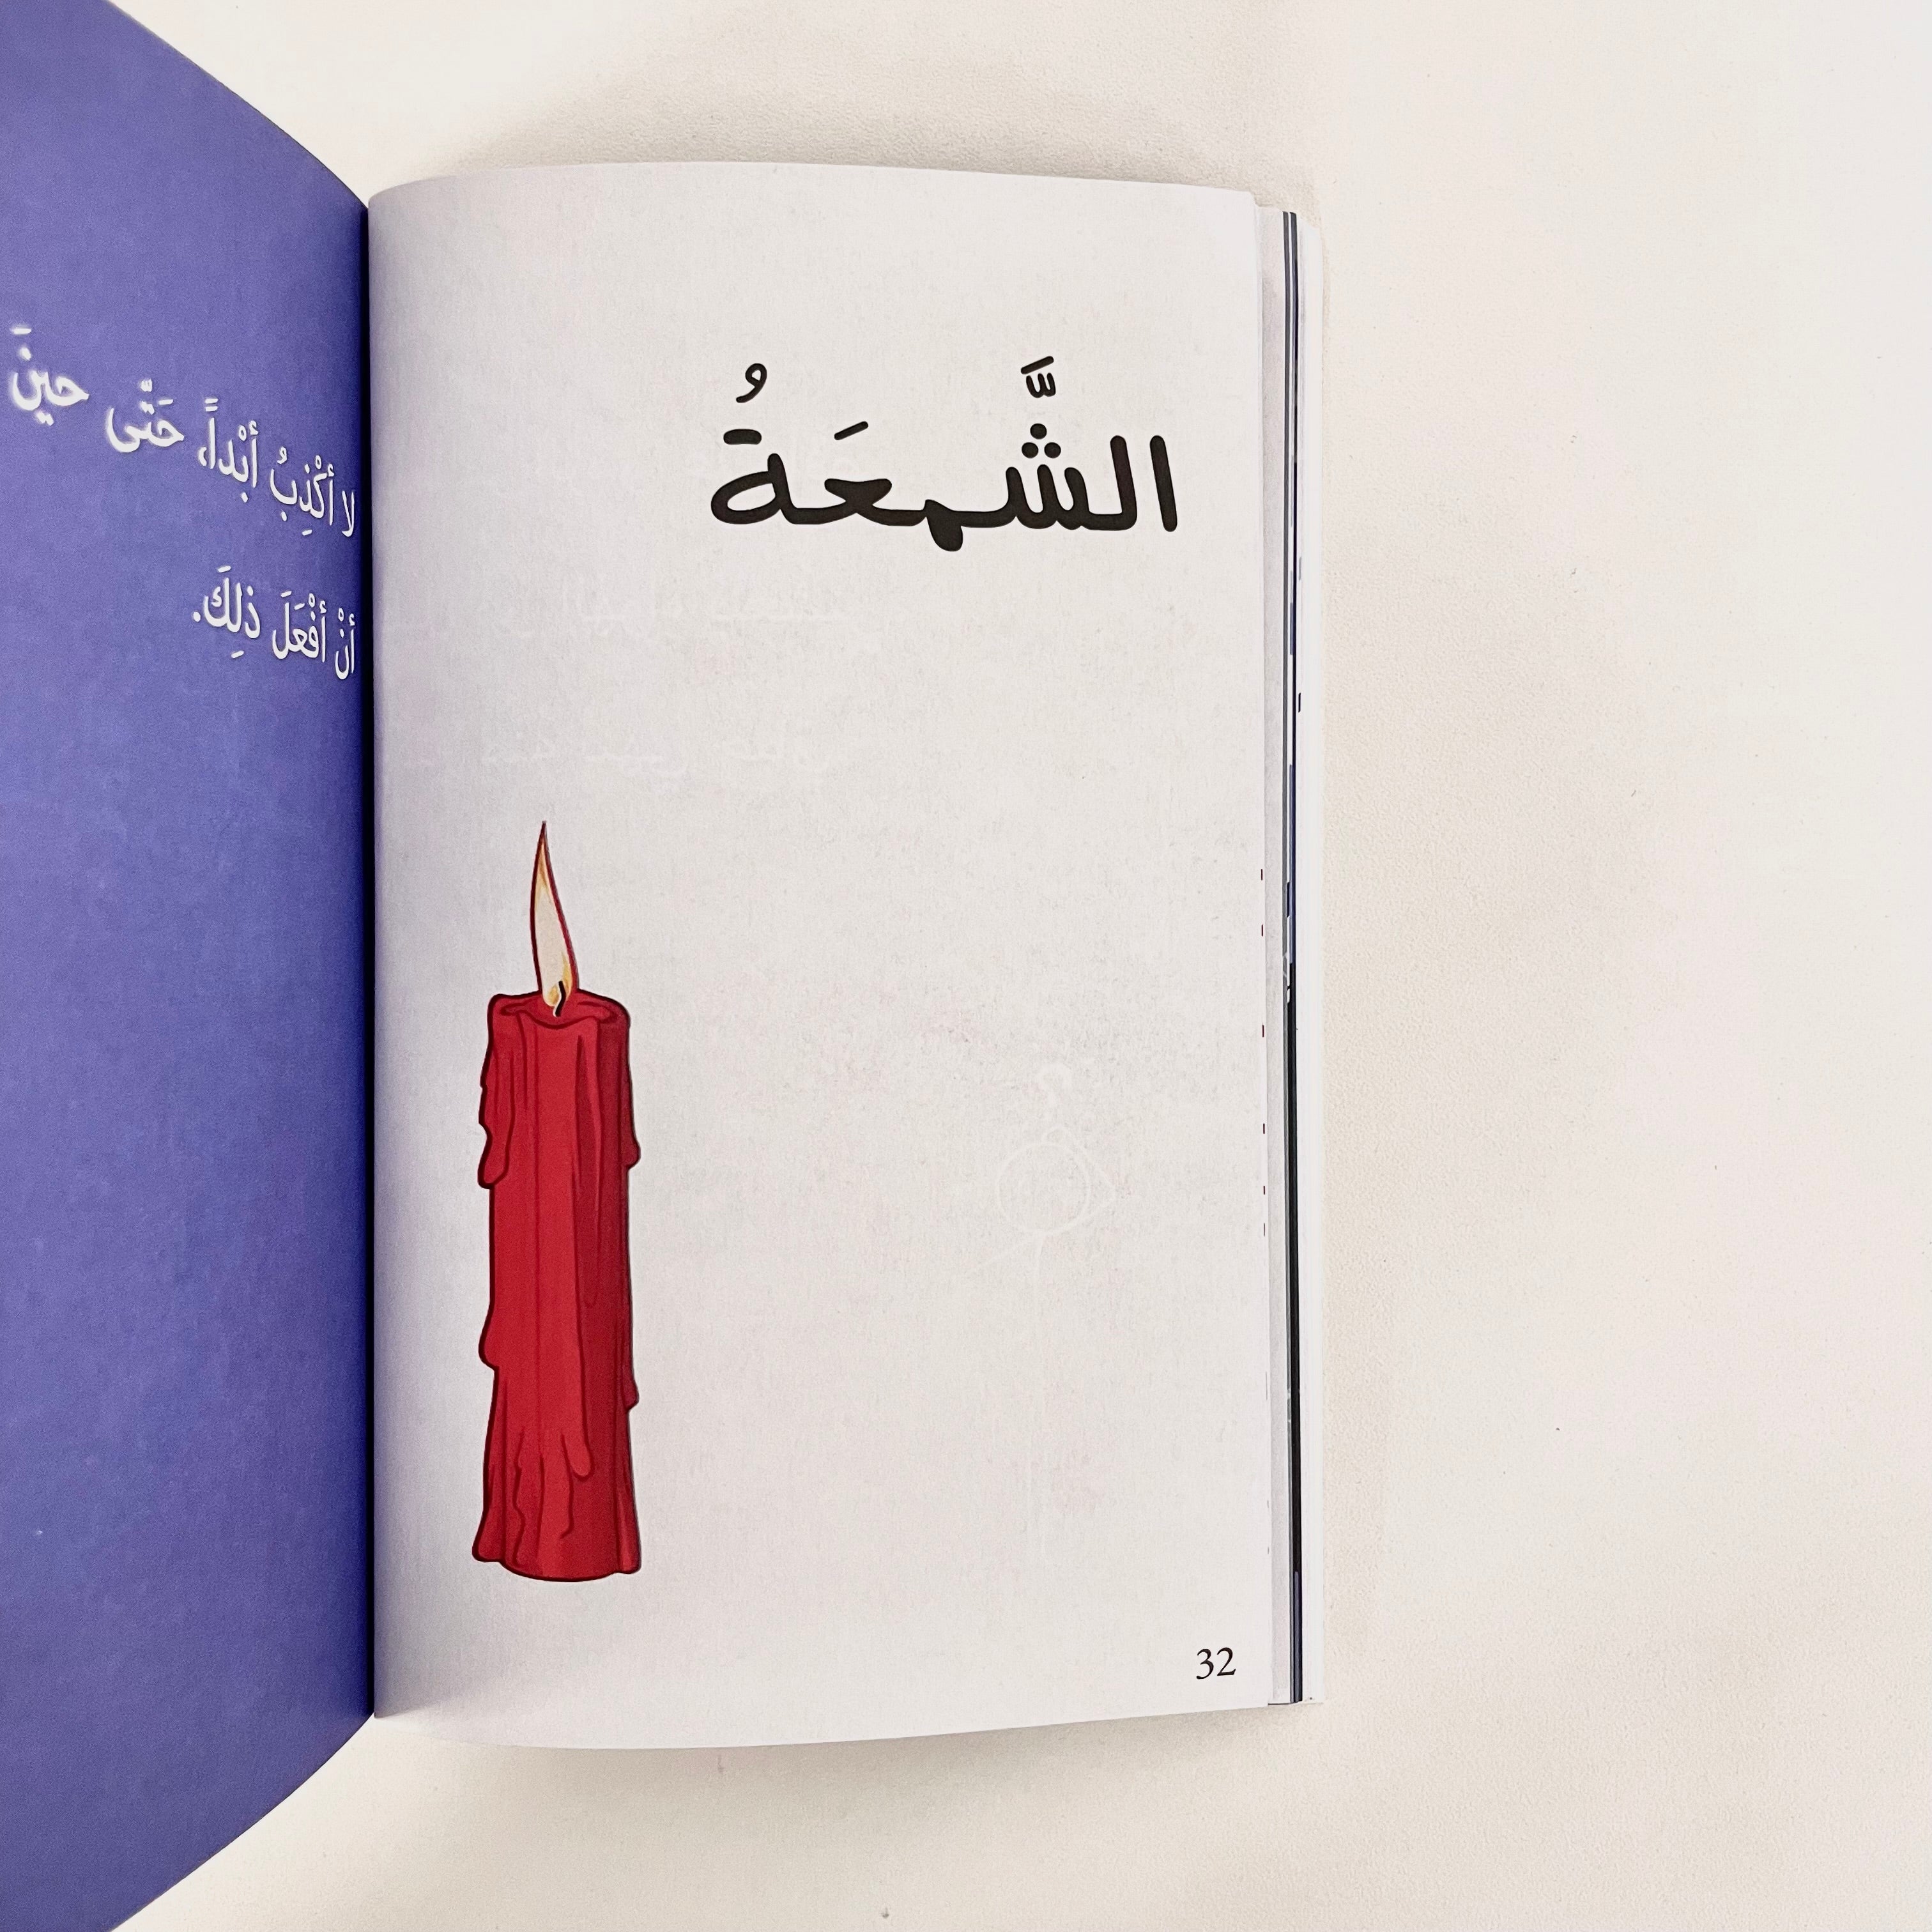 الشَّمعَةُ
32
لا أكْذِبُ أبْداً، حَتّى حينَ
أنْ أفْعَلَ ذلِكَ.